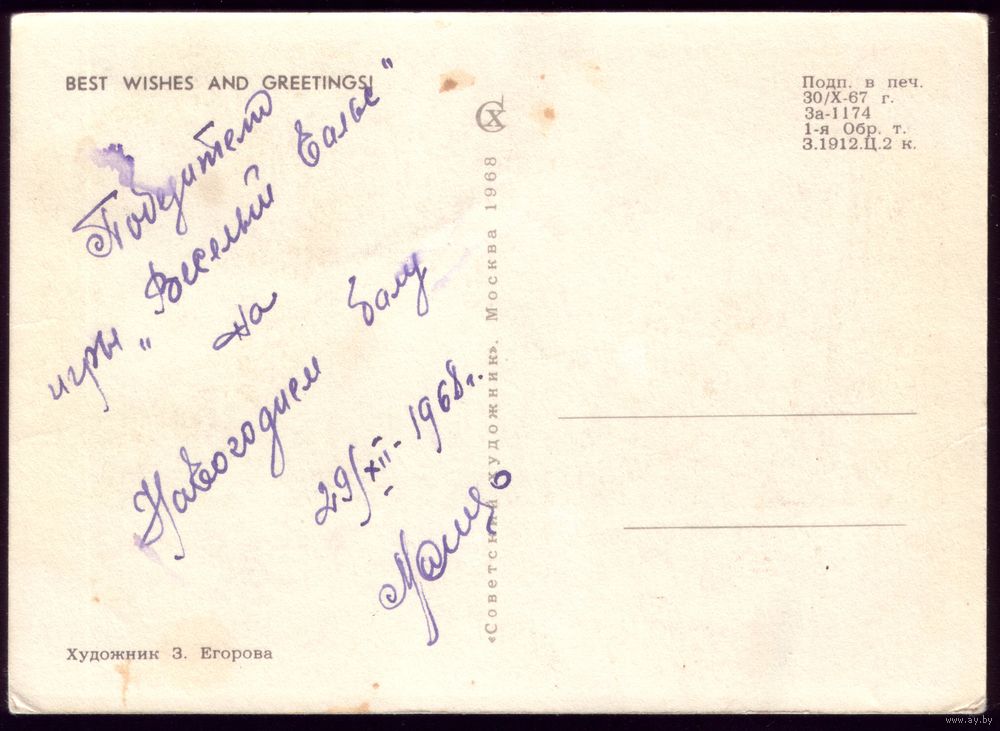 BEST WISHES AND GREETINGS!
Победителю
игры „Веселый вальс"
на
Навогоднем балу
29/XII-1968 г.
Художник З. Егорова
«Советский художник». Москва 1968
СХ
Подп. в печ.
30/X-67 г.
За-1174
1-я Обр. т.
З.1912.Ц.2 к.
www.ay.by